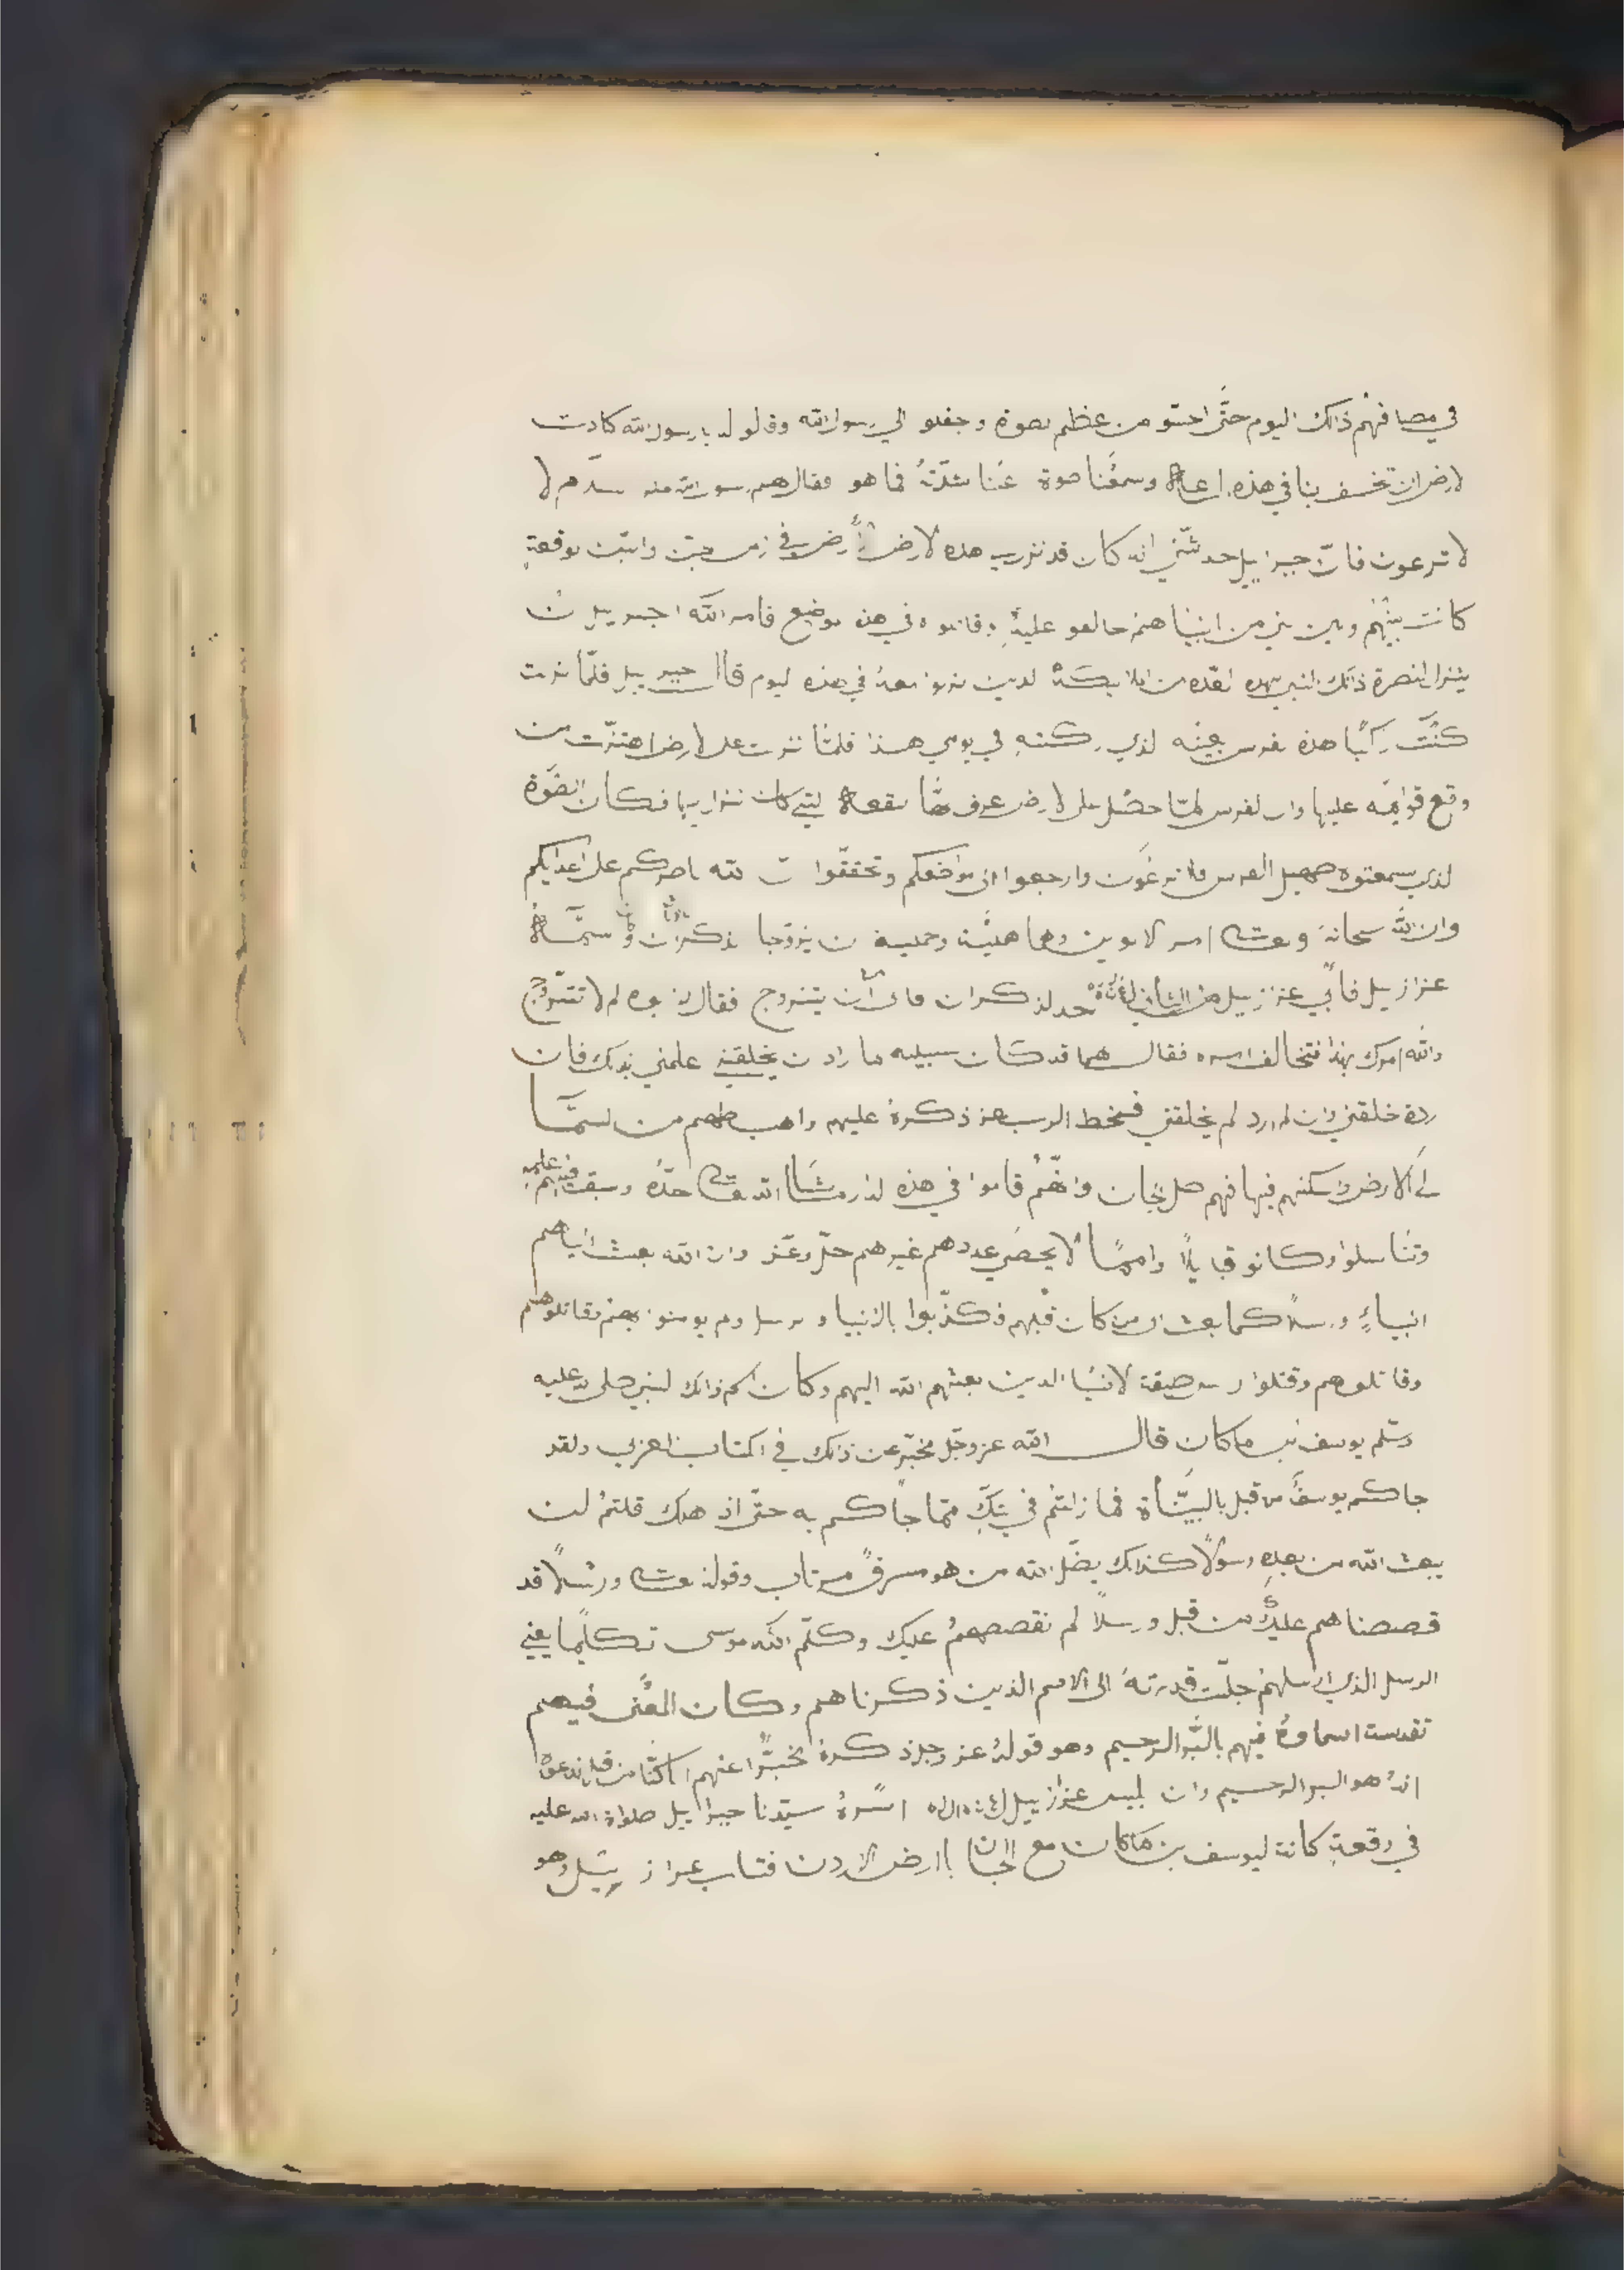 في مصافهم ذالك اليوم حتى احسو من عظم بصوة وجفلو الي رسول الله وقالو له يا رسول الله كادت
لارض ان تخسف بنا في هذه وسمعنا صوة عنا شدته فما هو فقال لهم رسول الله منه سلام لا
لا ترعون فان جبرايل حدثني انه كان قد نزل هذه لارض أرض في زمن وانبت بوقعة
كانت بينهم وبين نبي من انبياهم عليه في هذه موضع فامر الله اجبرييل ن
ينزل لنصرة ذالك النبي بهذه لعده من الملايكة لدين نزلو معه في هذه ليوم قال جبرييل فلما نزلت
كنت راكبا هذه لفرس بعينه لذي ركبته في يومي هذا فلما نزلت على لارض اهتزت من
وقع قوايمه عليها وان لفرس لما حصل على لارض عرف لتي كان نزل بها فكان الصوة
لذي سمعتوه صهيل الفرس فلا ترعون وارجعوا الى مواضعكم وتحققوا ن لله ناصركم على اعدايكم
وان الله سبحانه وتعالى امر لابوين وهما وحملية ن يزوجا ذكران سماه
عزازيل فأبي عزازيل هذا الثاني لذكران أن يتزوج فقال له لم لا تتزوج
والله امرك بهذا فتخالف امره فقال لهما قد كان سبيله ما راد ن يخلقني علمني بذلك فان
ردة خلقني وان لم ارد لم يخلقني فسخط الرب عز ذكرة عليهم واهبطهم من لسما
لى الارض واسكنهم فيها فهم صل لجان وانهم قاموا في هذه لدار ما شاا الله تعالى حده وسبقت فيهم علمه
وتناسلوا وكانو قبايلاً وامما لا يحصي عددهم غيرهم جل وعز وان الله بعث اياهم
انبياءٍ ورسلاً كما بعث الى من كان قبلهم فكذبوا بالانبيا و لرسل ولم يومنو بهم فقاتلوهم
وقاتلوهم وقتلوا لانبيا الدين بعثهم الله اليهم وكان لنبي صلى لله عليه
وسلم يوسف بن ماكان قال الله عز وجل مخبر عن ذالك في الكتاب لعزيز ولقد
جاكم يوسف من قبل بالبيناة فما زلتم في شكٍ مما جاكم به حتى اذ هلك قلتم لن
يبعث الله من بعده رسولاً كذالك يضل الله من هو مسرفً مرتاب وقوله تعالى ورسلاً قد
قصصناهم عليك من قبل ورسلاً لم نقصصهم عليك وكلم الله موسى تكليما يعني
الرسل الذي ارسلهم جلت قدرته الى الامم الذين ذكرناهم وكان المعنى فيهم
تقدست اسماوه فيهم بالبر الرحيم وهو قوله عز وجل ذكره مخبراً عنهم انا كنا من قبل ندعوه
انه هو البر الرحيم وان بليس عزازييل اسره سيدنا جبراييل صلواة الله عليه
في وقعةٍ كانت ليوسف بن ماكان مع الجان باارض الاردن فتاب عزازييل وهو